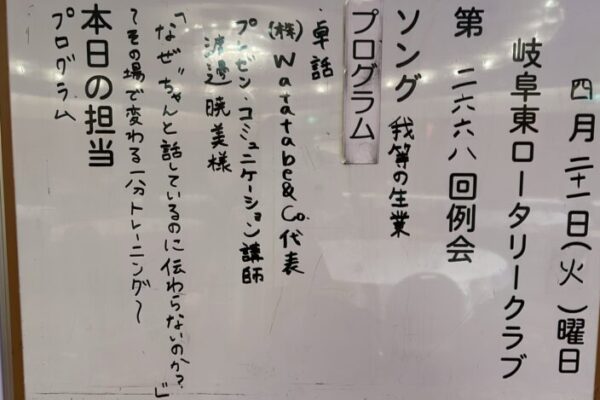 四月二十一日(火)曜日
岐阜東ロータリークラブ
第二六六八回例会
ソング 我等の生業
プログラム
卓話
(株)Watatabe&Co.代表
プレゼン・コミュニケーション講師
渡邉暁美様
「なぜ"ちゃんと話しているのに伝わらないのか?」
~その場で変わる一分トレーニング~
本日の担当
プログラム